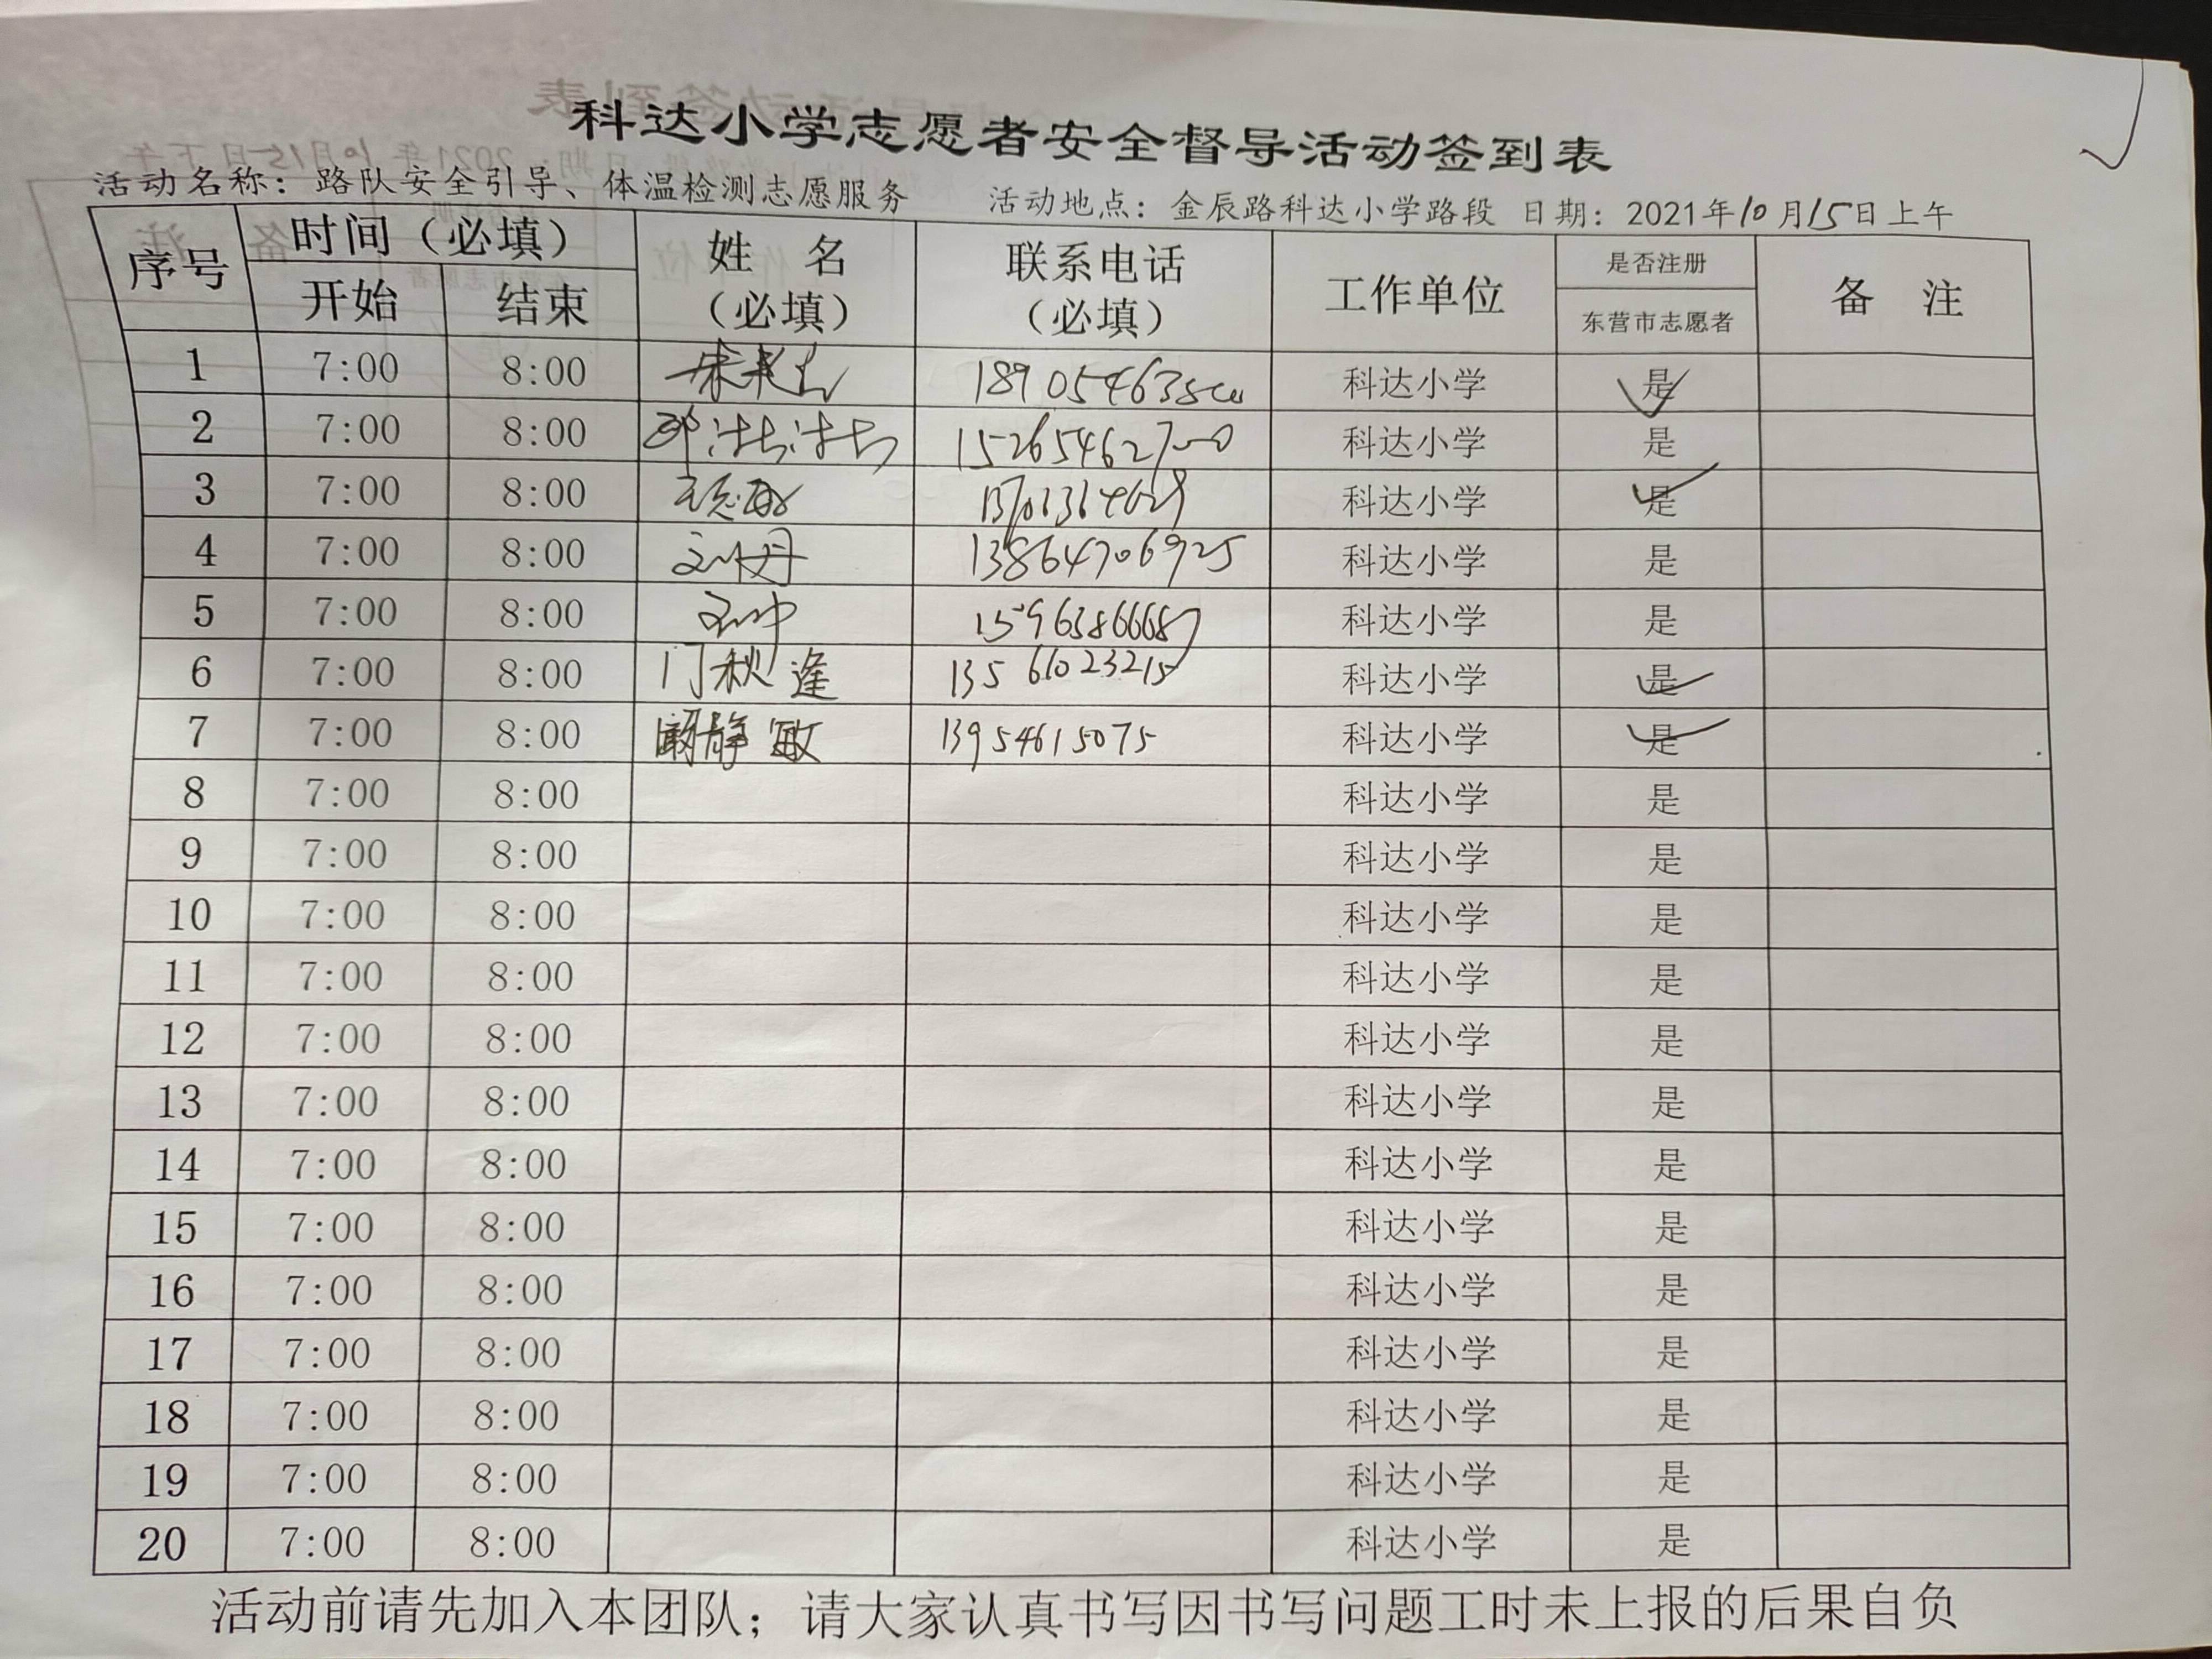 科达小学志愿者安全督导活动签到表
活动名称：路队安全引导、体温检测志愿服务 活动地点：金辰路科达小学路段 日期：2021年10月15日上午
序号 时间（必填） 姓 名（必填） 联系电话（必填） 工作单位 是否注册 备 注
开始 结束 东营市志愿者
1 7:00 8:00 科达小学 是
2 7:00 8:00 15265462700 科达小学 是
3 7:00 8:00 科达小学 是
4 7:00 8:00 刘丹 13864706925 科达小学 是
5 7:00 8:00 科达小学 是
6 7:00 8:00 门秋逢 13561023215 科达小学 是
7 7:00 8:00 静敏 13954615075 科达小学 是
8 7:00 8:00 科达小学 是
9 7:00 8:00 科达小学 是
10 7:00 8:00 科达小学 是
11 7:00 8:00 科达小学 是
12 7:00 8:00 科达小学 是
13 7:00 8:00 科达小学 是
14 7:00 8:00 科达小学 是
15 7:00 8:00 科达小学 是
16 7:00 8:00 科达小学 是
17 7:00 8:00 科达小学 是
18 7:00 8:00 科达小学 是
19 7:00 8:00 科达小学 是
20 7:00 8:00 科达小学 是
活动前请先加入本团队；请大家认真书写因书写问题工时未上报的后果自负